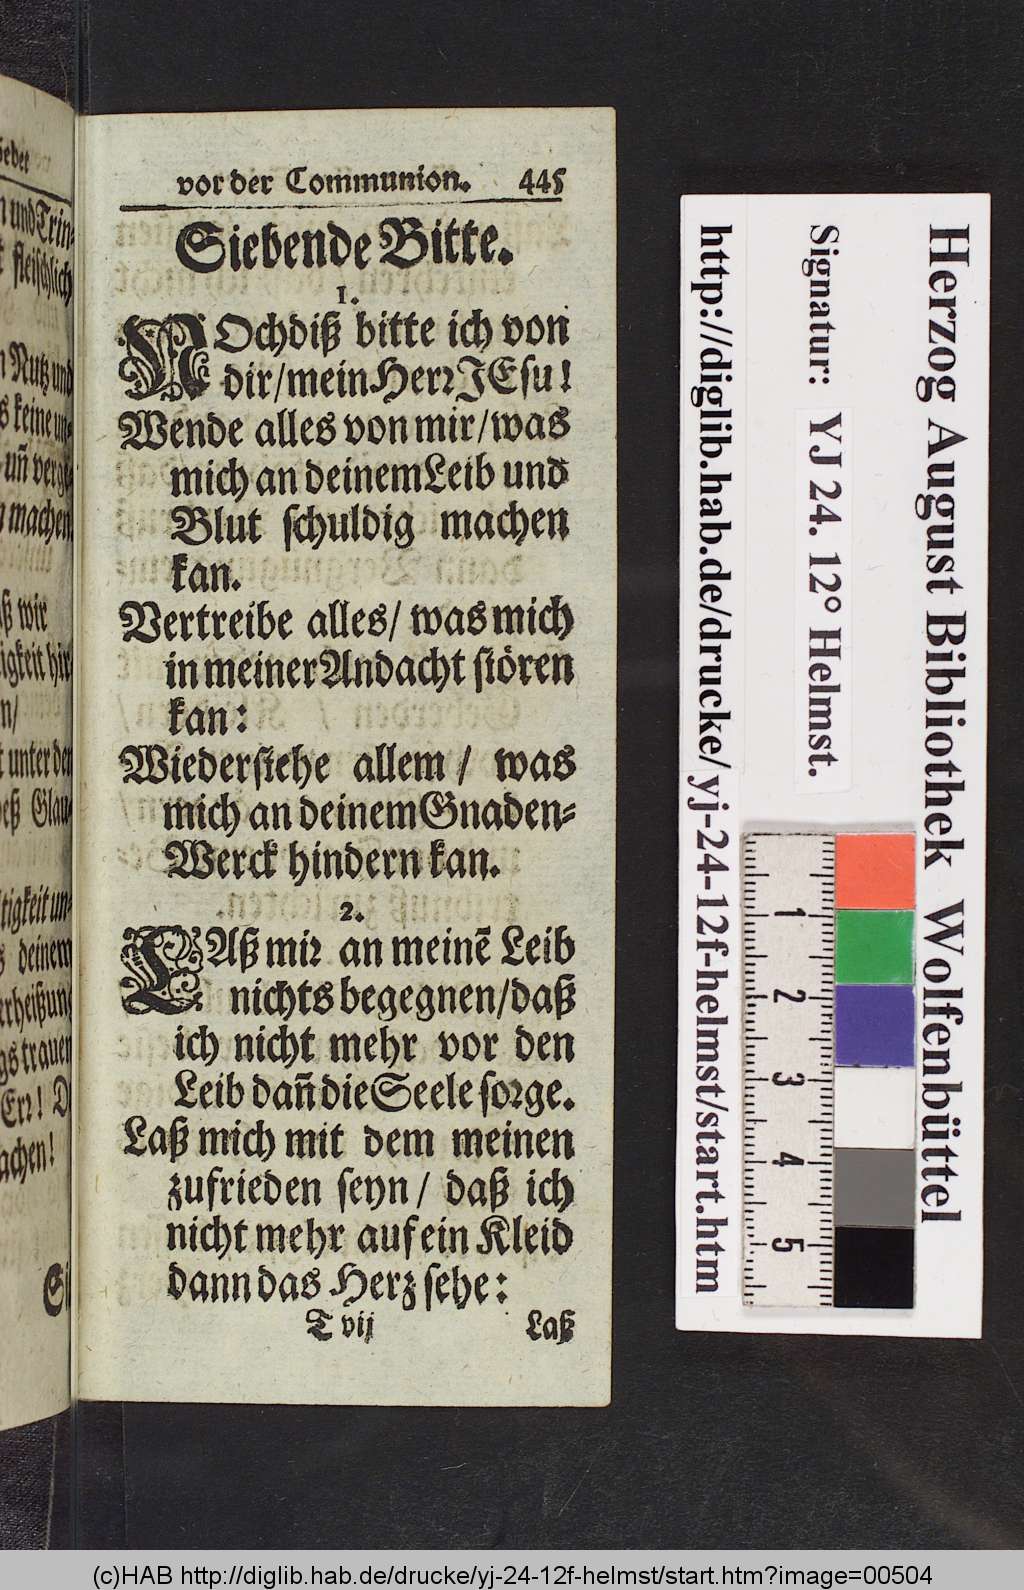 Gebet
und Trin-
fleischlich
Nutz und
keine un-
uñ verge
machen
wir
unter den
Glau-
deinem
trauen
achen!
vor der Communion. 445
Siebende Bitte.
1.
NOch diß bitte ich von
dir/ mein Herr JEsu!
Wende alles von mir/ was
mich an deinem Leib und
Blut schuldig machen
kan.
Vertreibe alles/ was mich
in meiner Andacht stören
kan:
Wiederstehe allem / was
mich an deinem Gnaden-
Werck hindern kan.
2.
LAß mir an meinē Leib
nichts begegnen/ daß
ich nicht mehr vor den
Leib dañ die Seele sorge.
Laß mich mit dem meinen
zufrieden seyn/ daß ich
nicht mehr auf ein Kleid
dann das Herz sehe:
T vij Laß
Herzog August Bibliothek Wolfenbüttel
Signatur: YJ 24. 12° Helmst.
http://diglib.hab.de/drucke/yj-24-12f-helmst/start.htm
1
2
3
4
5
(c)HAB http://diglib.hab.de/drucke/yj-24-12f-helmst/start.htm?image=00504